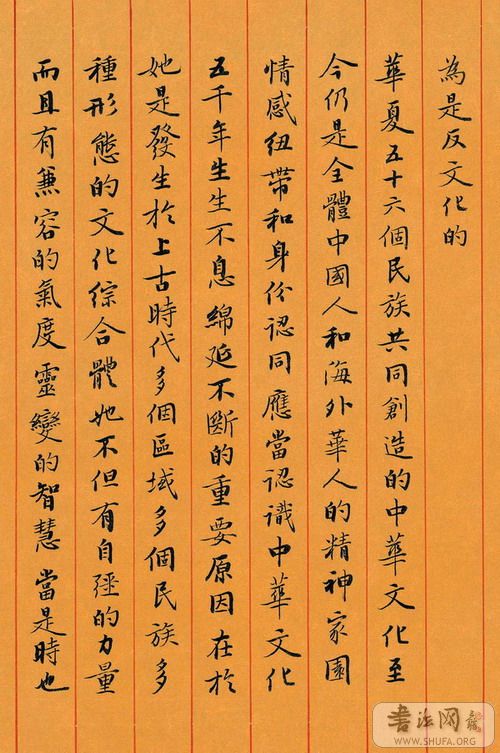 為是反文化的
華夏五十六個民族共同創造的中華文化至
今仍是全體中國人和海外華人的精神家園
情感紐帶和身份認同應當認識中華文化
五千年生生不息綿延不斷的重要原因在於
她是發生於上古時代多個區域多個民族多
種形態的文化綜合體她不但有自强的力量
而且有兼容的氣度靈變的智慧當是時也
書法网
WWW.SHUFA.ORG